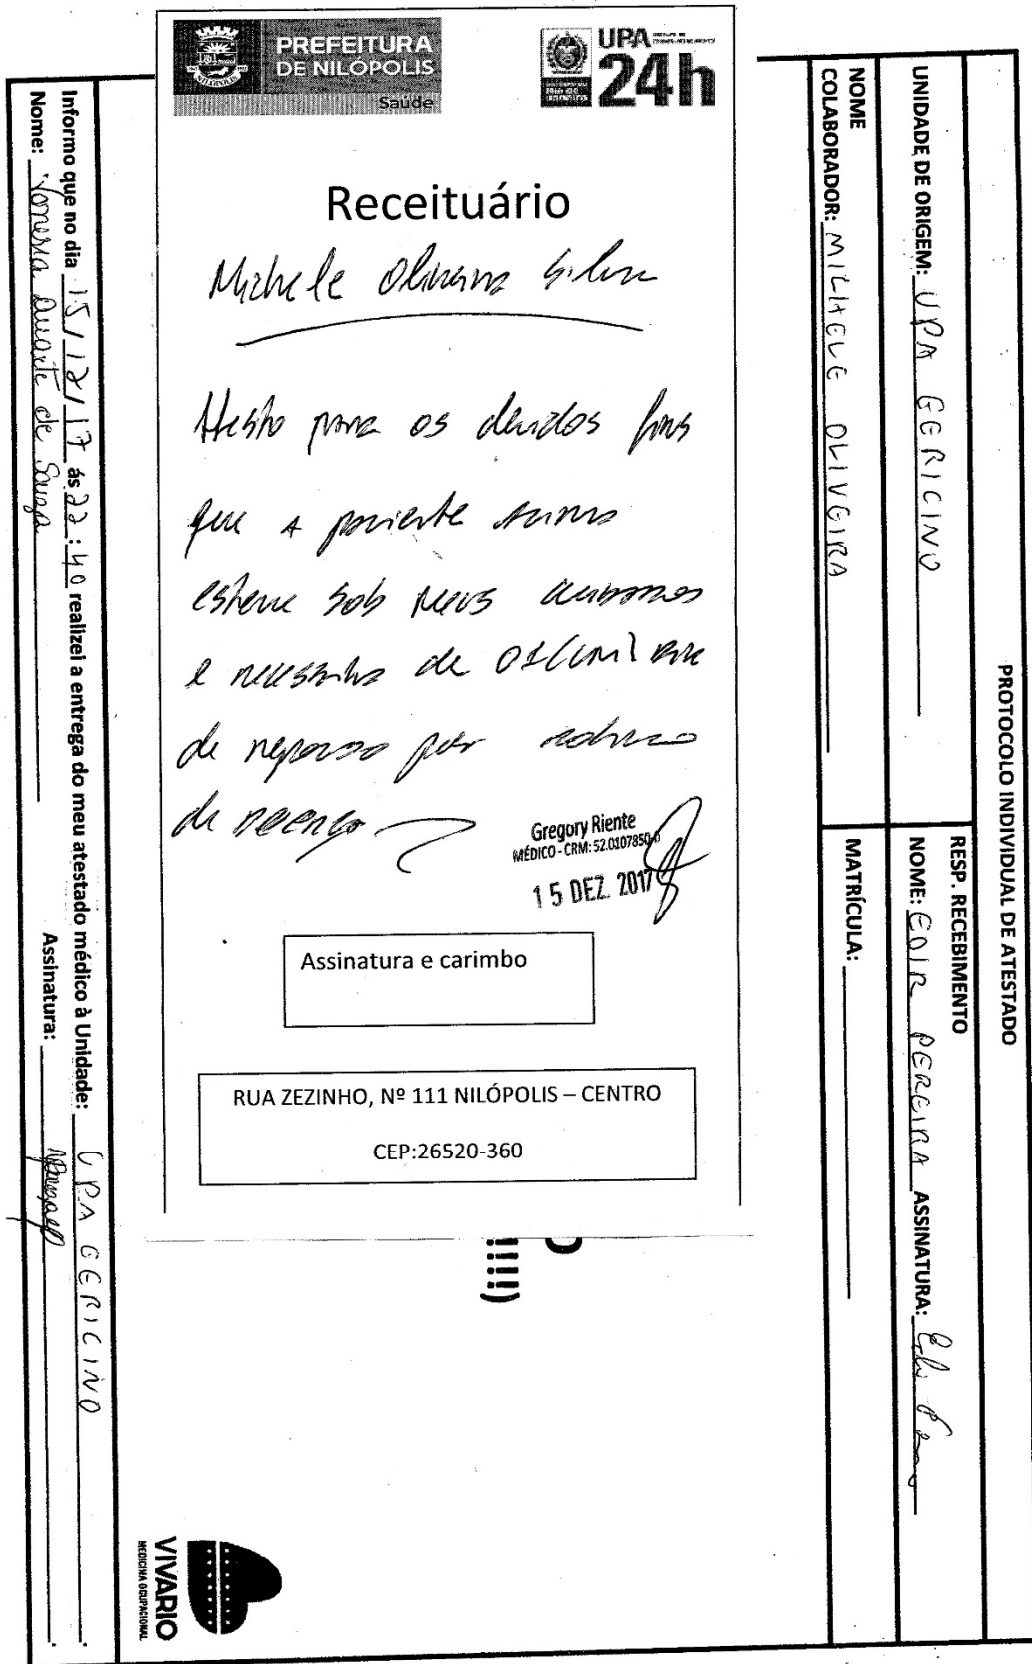 PREFEITURA
DE NILÓPOLIS
Saúde
UPA
24h
Receituário
Michele Oliveira Silva
Atesto para os devidos fins
que a paciente acima
esteve sob meus cuidados
e necessita de 01 (um) dia
de repouso por motivo
de doença
Gregory Riente
MÉDICO - CRM: 52.0107850-0
15 DEZ. 2017
Assinatura e carimbo
RUA ZEZINHO, Nº 111 NILÓPOLIS – CENTRO
CEP:26520-360
PROTOCOLO INDIVIDUAL DE ATESTADO
UNIDADE DE ORIGEM: UPA GERICINO
RESP. RECEBIMENTO
NOME: EDIR PEREIRA ASSINATURA:
NOME
COLABORADOR: MICHELE OLIVEIRA
MATRÍCULA:
!!!!)
VIVARIO
MEDICINA OCUPACIONAL
Informo que no dia 15/12/17 ás 22:40 realizei a entrega do meu atestado médico à Unidade: UPA GERICINO.
Nome: Vanessa Duarte de Souza Assinatura: